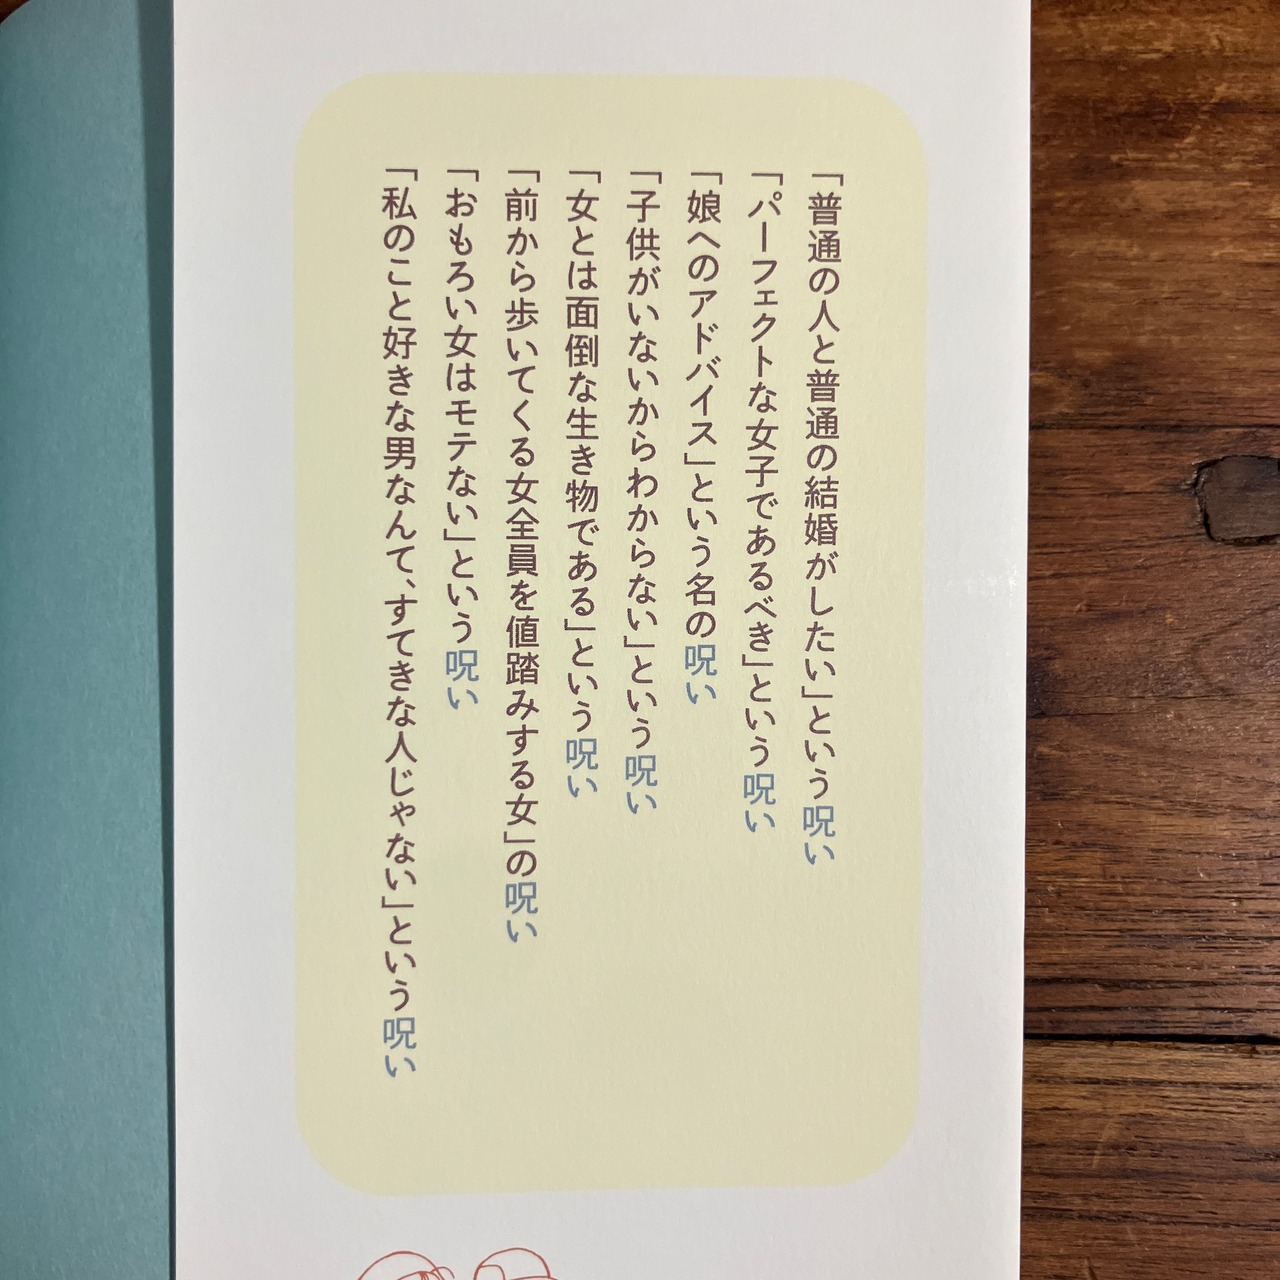 「普通の人と普通の結婚がしたい」という呪い
「パーフェクトな女子であるべき」という呪い
「娘へのアドバイス」という名の呪い
「子供がいないからわからない」という呪い
「女とは面倒な生き物である」という呪い
「前から歩いてくる女全員を値踏みする女」の呪い
「おもろい女はモテない」という呪い
「私のこと好きな男なんて、すてきな人じゃない」という呪い